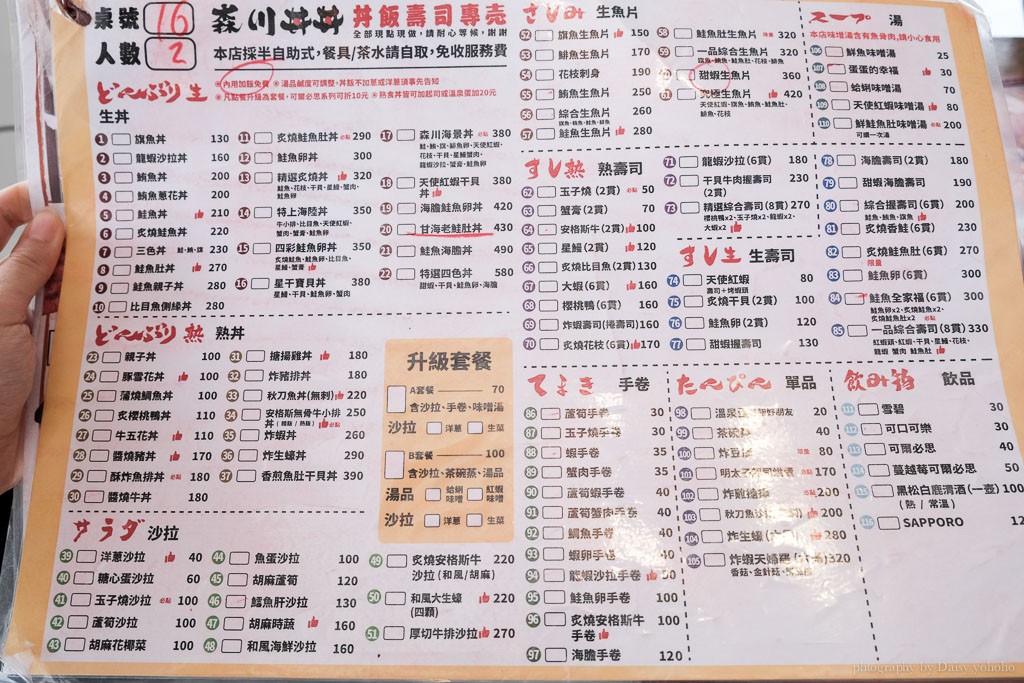 桌號 16
人數 2
森川丼丼 丼飯壽司專売
全部現點現做，請耐心等候，謝謝
本店採半自助式，餐具/茶水請自取，免收服務費
どんぶり 生
生丼
※內用加飯免費 ※湯品鹹度可調整、丼飯不加蔥或洋蔥須事先告知
※凡點套餐升級為套餐，可爾必思系列可折10元 ※熟食丼皆可加起司或溫泉蛋加20元
1 旗魚丼 130
2 龍蝦沙拉丼 160
3 鮪魚丼 200
4 鮪魚蔥花丼 200
5 鮭魚丼 210
6 炙燒鮭魚丼 220
7 三色丼 鮭、鮪、旗 230
8 鮭魚肚丼 270
9 鮭魚親子丼 280
10 比目魚側緣丼 280
11 炙燒鮭魚肚丼 必點 290
12 鮭魚卵丼 300
13 精選炙燒丼 320
鮭魚、花枝、干貝、星鰻、蟹肉、
鮭魚卵
14 特上海陸丼 350
牛小排、比目魚、天使紅蝦、
蟹膏、鮭魚卵
15 四彩鮭魚卵丼 350
炙燒鮭魚、鮭魚卵、比目魚、
星鰻、蟹膏
16 星干寶貝丼 380
星鰻、干貝、鮭魚卵、蟹肉
17 森川海景丼 必點 380
鮭、鮪、旗、鮭魚卵、天使紅蝦、
花枝、干貝、星鰻蟹肉、
龍蝦沙拉、鮭魚卵、蟹膏
18 天使紅蝦干貝丼 380
19 海膽鮭魚卵丼 420
20 甘海老鮭肚丼 430
21 鮭魚海膽丼 490
22 特選四色丼 580
甜蝦、干貝、鮭魚卵、海膽
どんぶり 熟 熟丼
23 親子丼 100
24 豚雪花丼 100
25 蒲燒鯛魚丼 100
26 炙櫻桃鴨丼 110
27 牛五花丼 110
28 醬燒豬丼 170
29 酥炸魚排丼 必點 180
30 醬燒牛丼 180
31 搪揚雞丼 180
32 炸豬排丼 180
33 秋刀魚丼(無刺) 220
34 安格斯無骨牛小排丼 250
35 炸蝦丼 260
36 炸生蠔丼 290
37 香煎魚肚干貝丼 390
升級套餐
A套餐 70
含沙拉、手卷、味噌湯
沙拉 洋蔥 生菜
B套餐 100
含沙拉、茶碗蒸、湯品
湯品 蛤蜊味噌 紅蝦味噌
沙拉 洋蔥 生菜
サラダ 沙拉
39 洋蔥沙拉 40
40 糖心蛋沙拉 60
41 玉子燒沙拉 必點 100
42 蘆筍沙拉 100
43 胡麻花椰菜 100
44 魚蛋沙拉 100
45 胡麻蘆筍 120
46 鱈魚肝沙拉 130
47 胡麻時蔬 160
48 和風海鮮沙拉 160
49 炙燒安格斯牛沙拉(和風/胡麻) 220
50 和風大生蠔(四顆) 220
51 厚切牛排沙拉 270
さしみ 生魚片
52 旗魚生魚片 150
53 鯡魚生魚片 170
54 花枝刺身 190
55 鮪魚生魚片 250
56 綜合生魚片 260
旗魚、鮪魚、鮭魚
57 鮭魚生魚片 280
58 鮭魚肚生魚片 320
59 一品綜合生魚片 320
60 甜蝦生魚片 360
61 究極生魚片 420
天使紅蝦、旗魚、鮪魚、鮭魚肚、
鯡魚、花枝
すし熟 熟壽司
62 玉子燒(2貫) 必點 50
63 蟹膏(2貫) 70
64 安格斯牛(2貫) 100
65 星鰻(2貫) 120
66 炙燒比目魚(2貫) 130
67 大蝦(6貫) 160
68 櫻桃鴨(6貫) 160
69 炸蝦壽司(捲壽司) 160
70 炙燒花枝(6貫) 170
71 龍蝦沙拉(6貫) 180
72 干貝牛肉握壽司(2貫) 230
73 精選綜合壽司(8貫) 270
櫻桃鴨x2、玉子燒x2、龍蝦x2、
大蝦x2
すし生 生壽司
74 天使紅蝦 80
壽司＋烤蝦頭
75 炙燒干貝(2貫) 100
76 鮭魚卵(2貫) 120
77 甜蝦握壽司 130
78 海膽壽司(2貫) 180
79 甜蝦海膽壽司 190
80 綜合握壽司(6貫) 200
鮭魚、鮪魚、旗魚
81 炙燒香鮭(6貫) 230
82 炙燒鮭魚肚(6貫) 270
限量
83 鮭魚卵(6貫) 300
84 鮭魚全家福(6貫) 300
鮭魚卵x2、炙燒鮭魚x2、
炙燒鮭魚肚x2 必點
85 一品綜合壽司(8貫) 330
紅蝦頭、紅蝦、干貝、星鰻、花枝、
龍蝦 蟹膏 鮭魚肚
スープ 湯
本店味增湯含有魚骨肉，請小心食用
106 鮮魚味增湯 25
107 蛋蛋的幸福 30
108 蛤蜊味增湯 70
109 天使紅蝦味增湯 80
110 鮮鮭魚肚味增湯 必點 200
可續一次湯
てまき 手卷
86 蘆筍手卷 30
87 玉子燒手卷 30
88 蝦手卷 35
89 蟹肉手卷 35
90 蘆筍蝦手卷 40
91 蘆筍蟹肉手卷 40
92 鯛魚手卷 40
93 蝦卵手卷 40
94 龍蝦沙拉手卷 50
95 鮭魚卵手卷 100
96 炙燒安格斯牛手卷 100
97 海膽手卷 120
たんぴん 單品
98 溫泉 20
99 茶碗 40
100 炸豆 限量 80
101 明太子 必點 170
102 炸雞 200
103 秋刀魚 200
104 炸生蠔 280
105 炸蝦天婦羅 320
香菇、金針菇
飲み物 飲品
111 雪碧 30
112 可口可樂 30
113 可爾必思 40
114 蔓越莓可爾必思 50
115 黑松白鹿清酒(一壺) 100
(熱 / 常溫)
116 SAPPORO 12
photography by Daisy yohoho